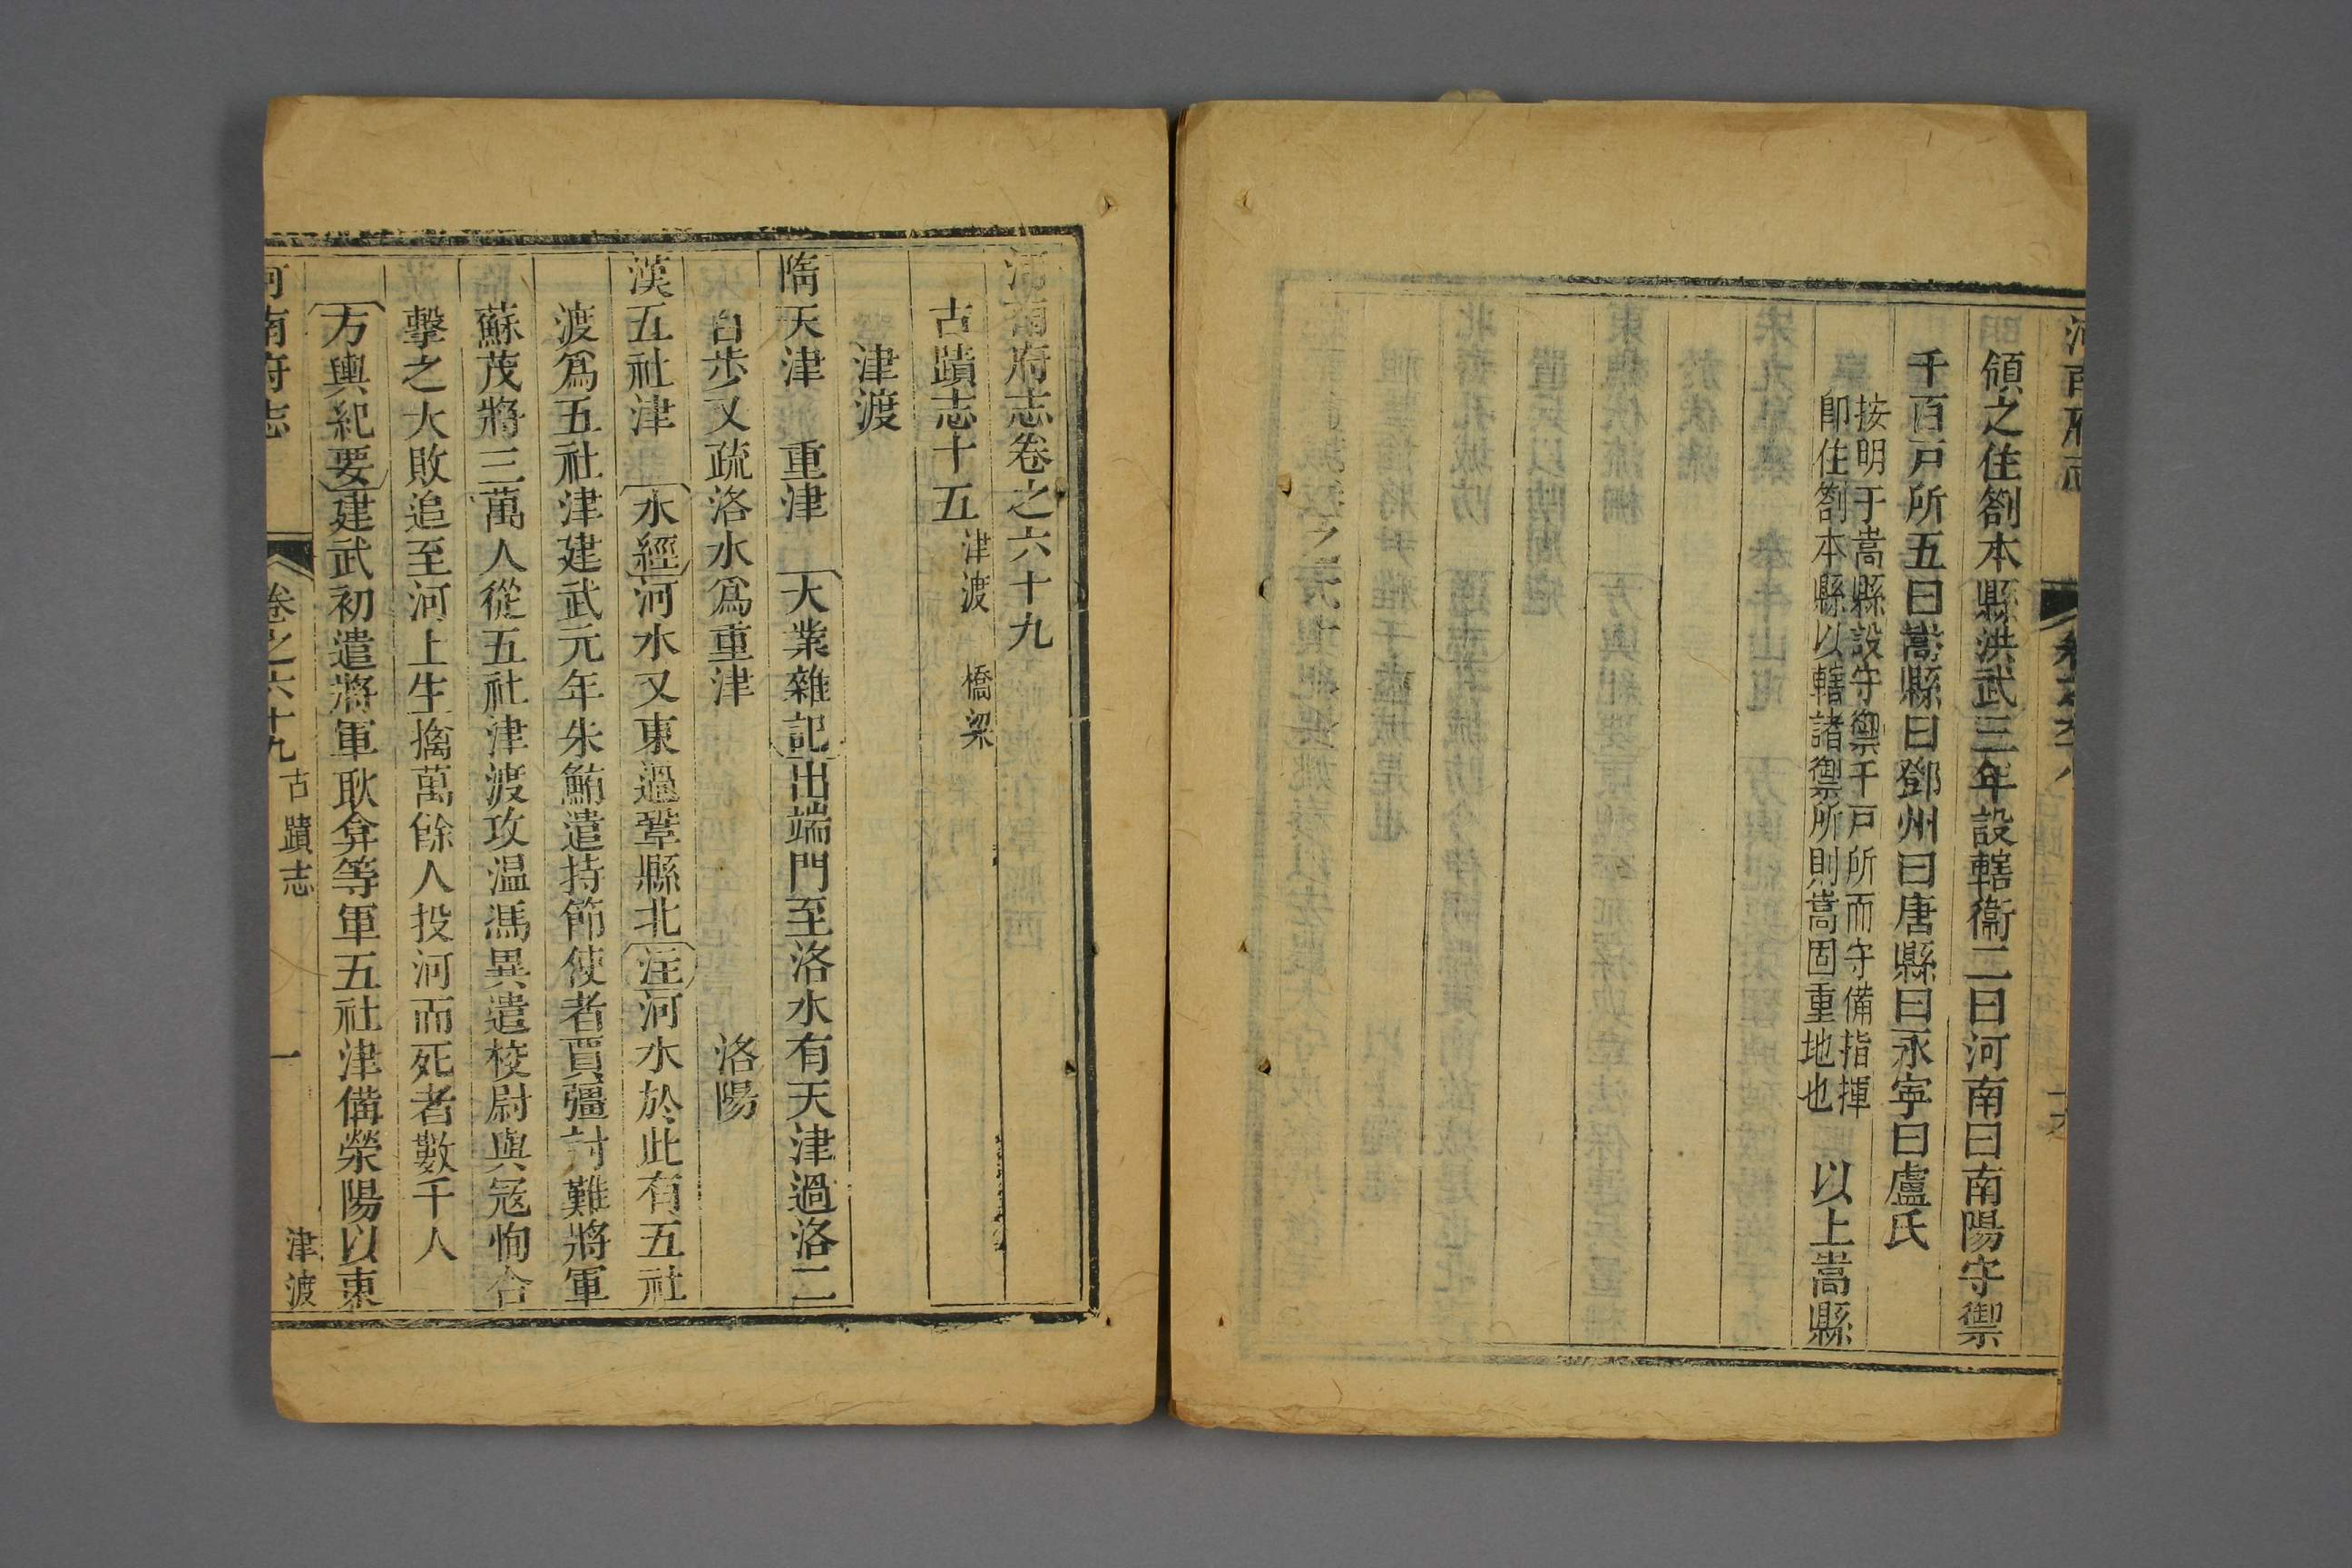 領之住劄本縣洪武三年設轄衞二曰河南曰南陽守禦
千百戸所五曰嵩縣曰鄧州曰唐縣曰永寜曰盧氏
按明于嵩縣設守禦千戸所而守備指揮
卽住劄本縣以轄諸禦所則嵩固重地也
以上嵩縣
河南府志卷之六十九
古蹟志十五
津渡 橋梁
津渡
隋天津 重津 大業雜記出端門至洛水有天津過洛二
百步又疏洛水爲重津 洛陽
漢五社津 水經河水又東過鞏縣北注河水於此有五社
渡爲五社津建武元年朱鮪遣持節使者賈彊討難將軍
蘇茂將三萬人從五社津渡攻温馮異遣校尉與寇恂合
擊之大敗追至河上生擒萬餘人投河而死者數千人
方輿紀要建武初遣將軍耿弇等軍五社津備滎陽以東
河南府志 卷之六十九 古蹟志 一 津渡